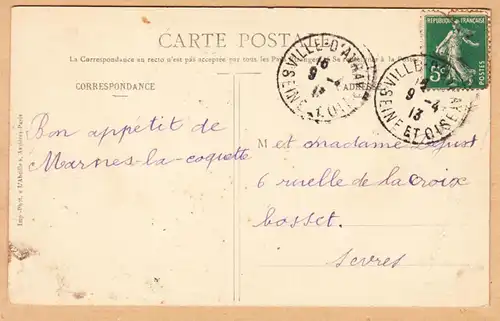 CARTE POSTALE
La Correspondance au recto n'est pas acceptée par tous les Pays
CORRESPONDANCE
ADRESSE
RÉPUBLIQUE FRANÇAISE
5c
VILLE-D'AVRAY
9 -4
13
SEINE ET OISE
VILLE-D'AVRAY
9 -4
13
SEINE ET OISE
Bon appétit de
Marnes-la-coquette
M et madame
6 ruelle de la croix
bosset.
Sevres